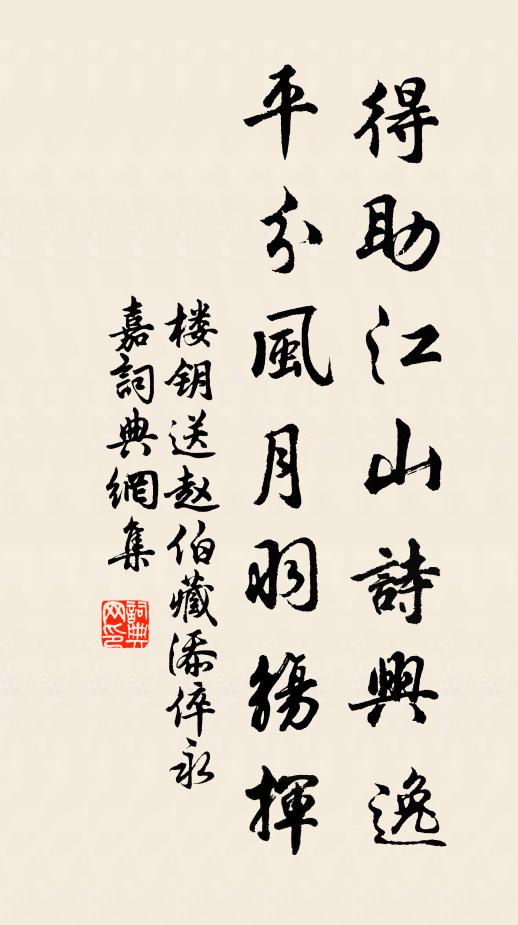 得助江山詩興逸
平分風月羽觴揮
楼钥送赵伯藏添倅永
嘉詞典網集
詞典
网印